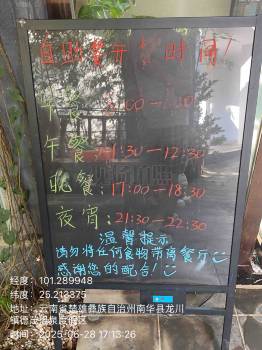 自助餐开餐时间
午餐:11:30—12:30
晚餐:17:00—18:30
夜宵:21:30—22:30
温馨提示
请勿将任何食物带离餐厅
感谢您的配合!
经度:101.289948
纬度:25.213375
地址:云南省楚雄彝族自治州南华县龙川
时间:2025-06-28 17:13:26